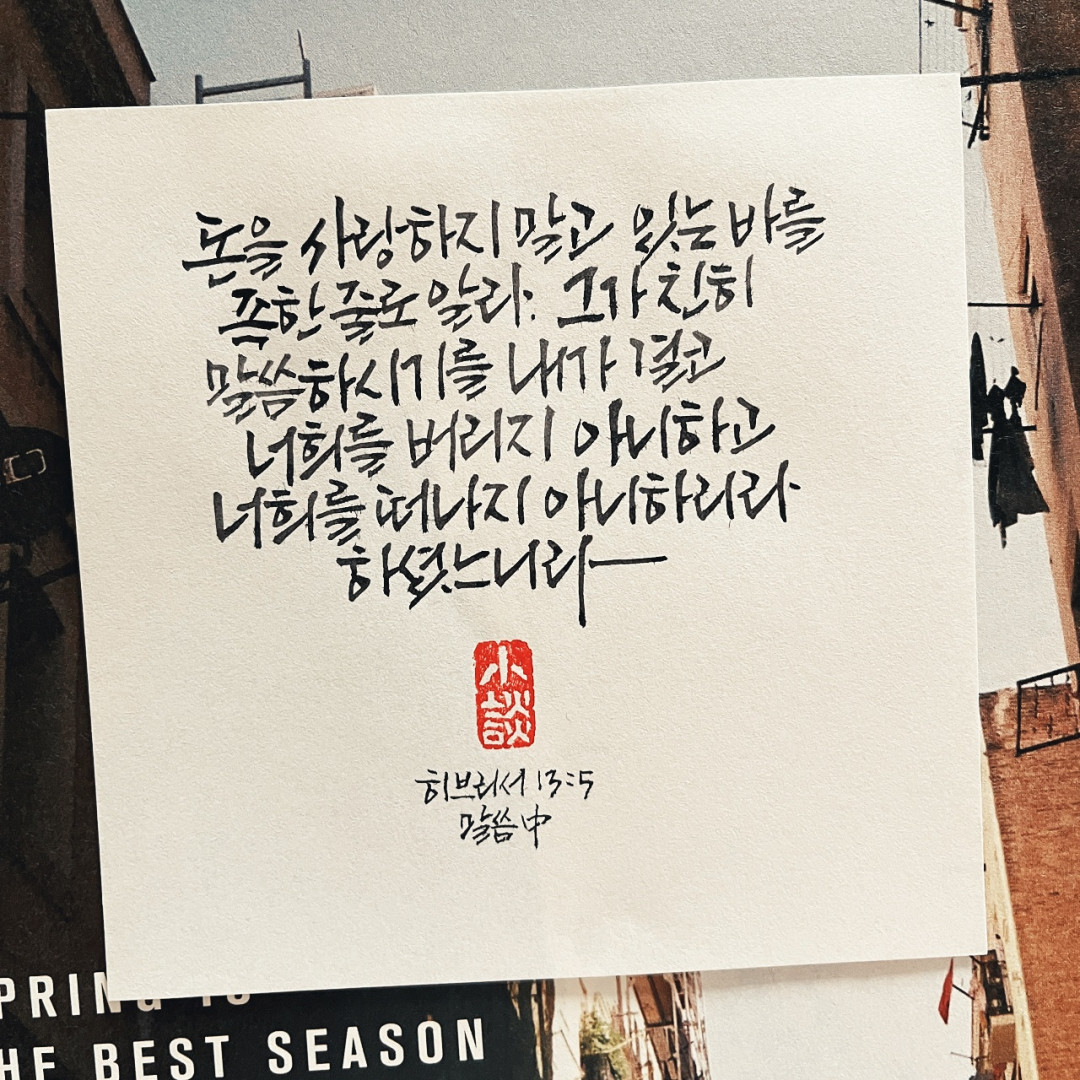 돈을 사랑하지 말고 있는 바를
족한 줄로 알라. 그가 친히
말씀하시기를 내가 결코
너희를 버리지 아니하고
너희를 떠나지 아니하리라
하셨느니라
小談
히브리서 13:5
말씀 中
PRING IS
HE BEST SEASON